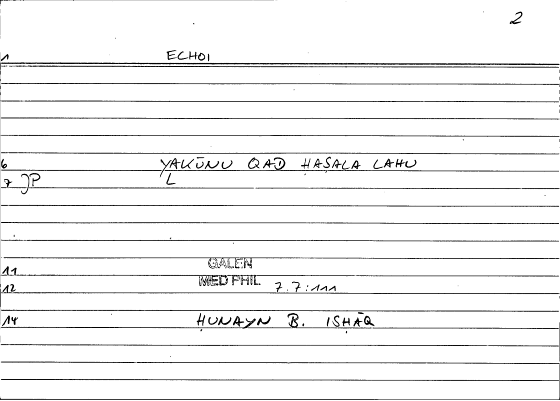 2
1 ECHOI
6 YAKŪNU QAD ḤAṢALA LAHU
7 JP L
11 GALEN
12 MED PHIL 7.7:111
14 ḤUNAYN B. ISḤĀQ